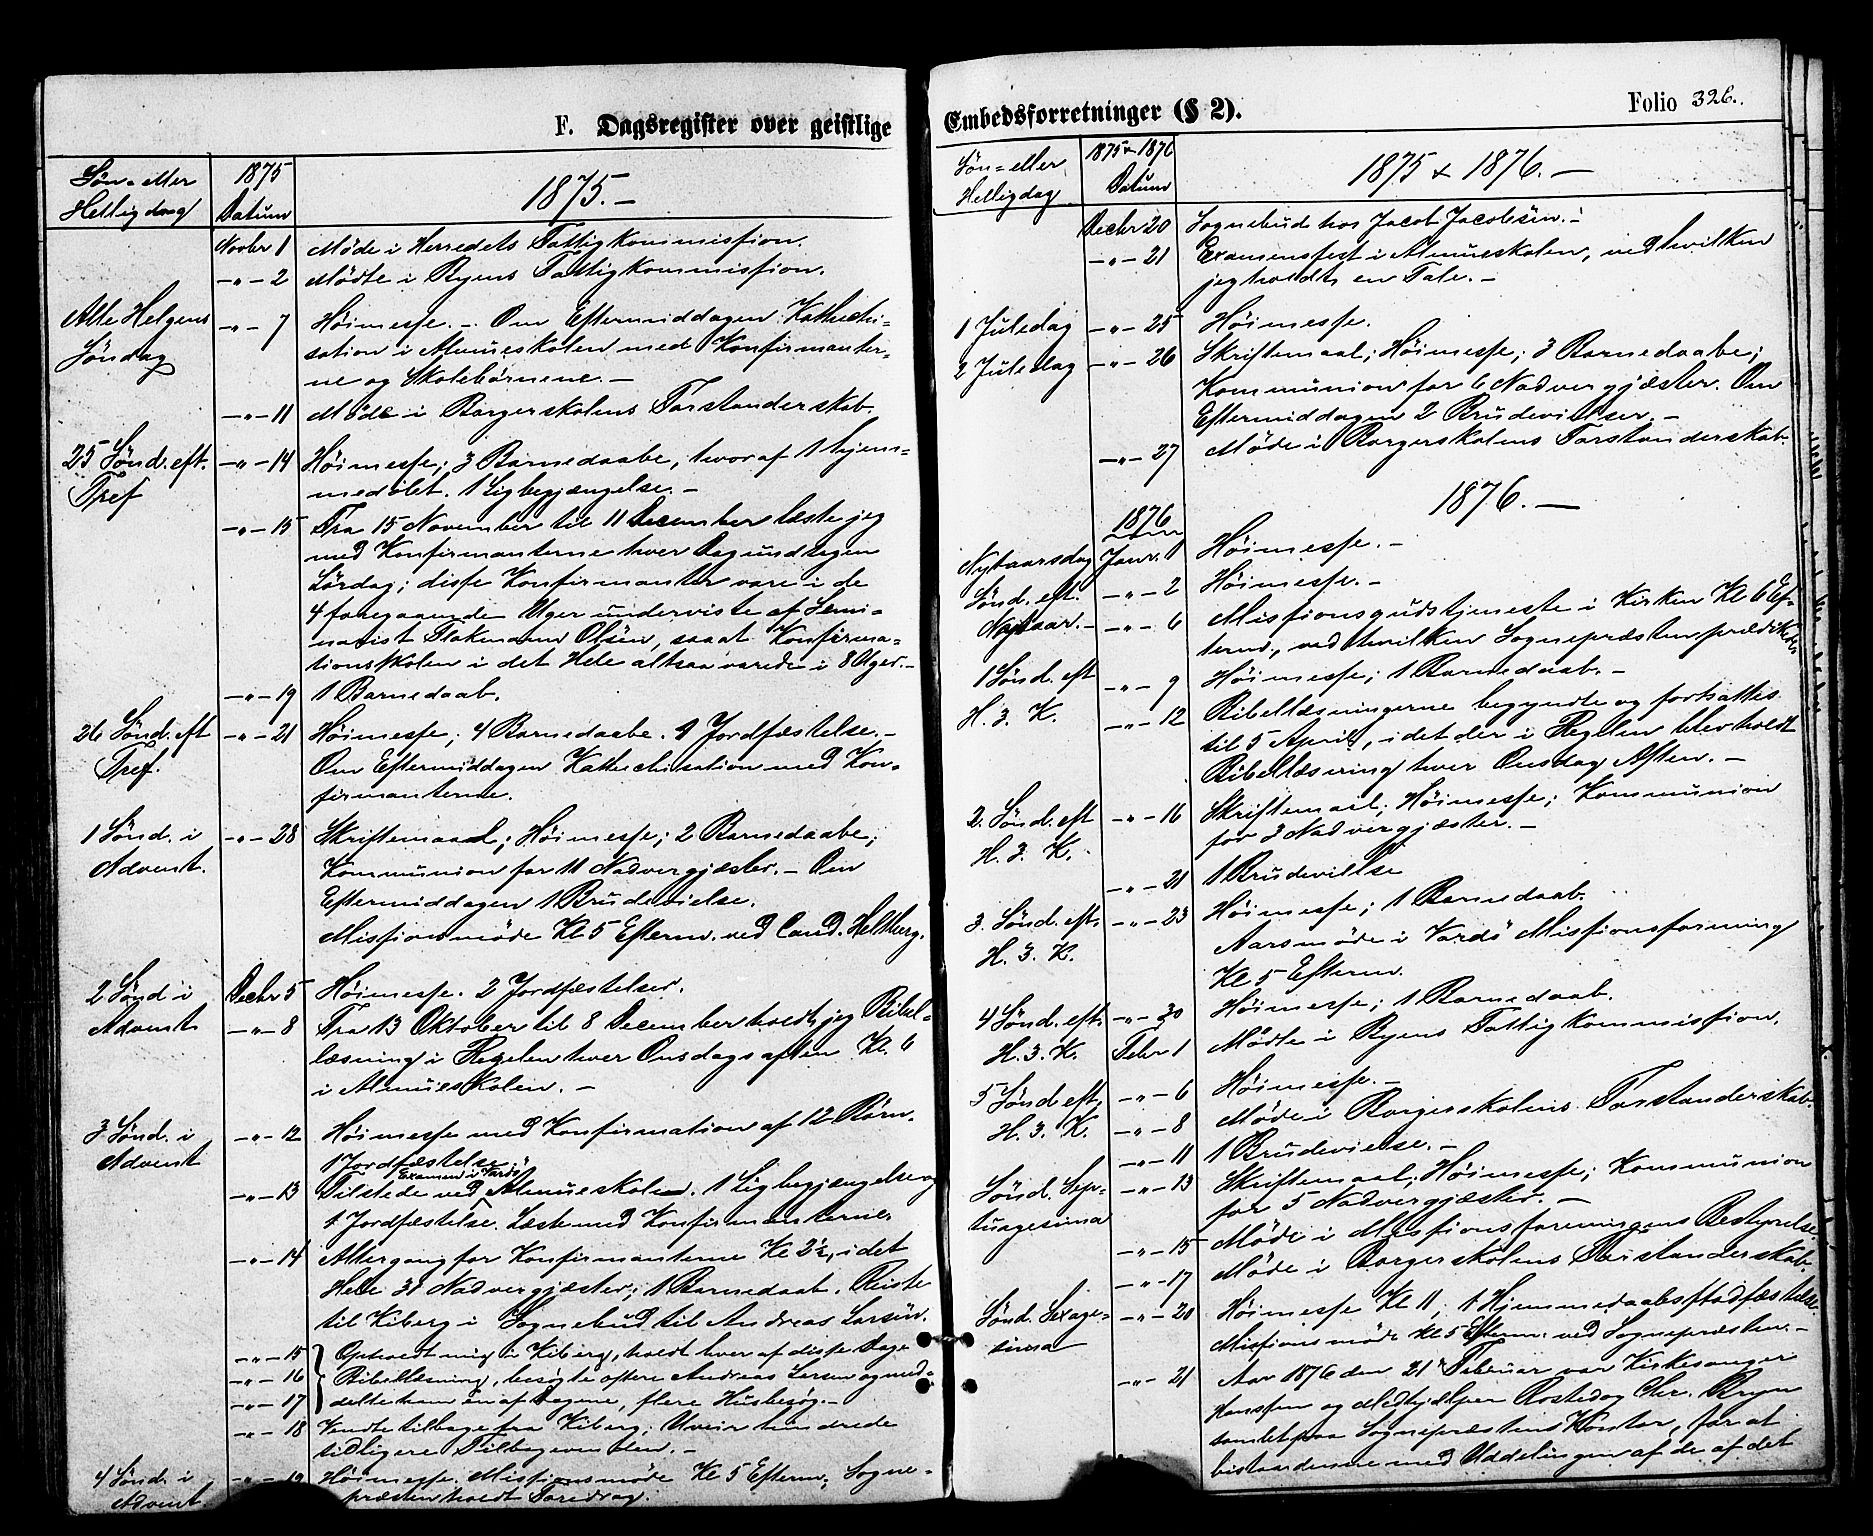 F. Dagsregister over geistlige
Søn- eller Helligdag
1875 Datum
1875.-
Novbr 1 Møde i Herredets Fattigkommission.
-"- 2 Mødte i Byens Fattigkommission.
Alle Helgens Søndag -"- 7 Høimesse. - Om Eftermiddagen Kathechi-
sation i Almueskolen med Konfirmanter-
ne og Skolebørnene. -
-"- 11 Møde i Borgerskolens Forstanderskab.
25 Sønd. eft. Tref -"- 14 Høimesse; 3 Barnedaabe, hvoraf 1 hjem-
medøbt. 1 Ligbegjængelse. -
-"- 15 Fra 15 November til 11 December læste jeg
med Konfirmanterne hver Dag undtagen
Lørdag; disse Konfirmanter vare i de
4 foregaaende Uger underviste af Semi-
narist Olsen, saaat Konfirma-
tionsskolen i det Hele altsaa varede i 8 Uger. -
-"- 19 1 Barnedaab.
26 Sønd. eft Tref. -"- 21 Høimesse; 4 Barnedaabe. 1 Jordfæstelse. -
Om Eftermiddagen Kathechisation med Kon-
firmanterne.
1 Sønd. i Advent. -"- 28 Skriftemaal; Høimesse; 2 Barnedaabe;
Kommunion for 11 Nadvergjæster. - Om
Eftermiddagen 1 Brudevielse.
Missionsmøde Kl 5 Efterm. ved Cand. Heltberg.
2 Sønd i Advent Decbr 5 Høimesse. 2 Jordfæstelser.
-"- 8 Fra 13 Oktober til 8 December holdt jeg Bibel-
læsning i Regelen hver Onsdagsaften Kl. 6
i Almueskolen. -
3 Sønd. i Advent -"- 12 Høimesse med Konfirmation af 12 Børn.
1 Jordfæstelse
Examen i Vardø
-"- 13 Tilstede ved Almueskolen. 1 Ligbegjængelse og
1 Jordfæstelse. Læste med Konfirmanterne
-"- 14 Altergang for Konfirmanterne Kl 2½, i det
Hele 31 Nadvergjæster; 1 Barnedaab. Reiste
til Kiberg i Sognebud til Andreas Larsen.
-"- 15 Opholdt mig i Kiberg, holdt hver af disse Dage
-"- 16 Bibellæsning, besøgte oftere Andreas Larsen og med-
-"- 17 delte ham en af Dagene, flere Husbesøg. -
-"- 18 Vendte tilbage fra Kiberg; Uveir hindrede
tidligere Tilbagevenden. -
4 Sønd. i Advent -"- 19 Høimesse. Missionsmøde Kl 5 Efterm., Sogne-
præsten holdt Foredrag.
Embedsforretninger (§ 2).
Folio 326.
Søn- eller Helligdag
1875 & 1876 Datum
1875 & 1876. -
Decbr 20 Sognebud hos Jacob Jacobsen. -
-"- 21 Examensfest i Almueskolen, ved hvilken
jeg holdt en Tale. -
1 Juledag -"- 25 Høimesse.
2 Juledag -"- 26 Skriftemaal; Høimesse; 3 Barnedaabe;
Kommunion for 6 Nadvergjæster. Om
Eftermiddagen 2 Brudevielser. -
-"- 27 Møde i Borgerskolens Forstanderskab.
1876. -
1876
Nytaarsdag Janr. 1 Høimesse. -
Sønd. eft. Nytaar. - -"- 2 Høimesse. -
-"- 6 Missionsgudstjeneste i Kirken Kl 6 Ef-
term, ved hvilken Sognepræsten prædikede
1 Sønd. eft H. 3. K. -"- 9 Høimesse; 1 Barnedaab. -
-"- 12 Bibellæsningerne begyndte og fortsattes
til 5 April, idet der i Regelen blev holdt
Bibellæsning hver Onsdag Aften. -
2. Sønd. eft H. 3. K. -"- 16 Skriftemaal; Høimesse; Kommunion
for 3 Nadvergjæster. -
-"- 21 1 Brudevielse
3. Sønd. eft. H. 3. K. -"- 23 Høimesse; 1 Barnedaab.
Aarsmøde i Vardø Missionsforening
Kl 5 Efterm.
4 Sønd. eft. H. 3. K. -"- 30 Høimesse; 1 Barnedaab.
Febr 1 Mødte i Byens Fattigkommission.
5 Sønd. eft. H. 3. K. -"- 6 Høimesse. -
-"- 8 Møde i Borgerskolens Forstanderskab.
-"- 11 1 Brudevielse. -
Sønd. Sep- tuagesima -"- 13 Skriftemaal; Høimesse; Kommunion
for 5 Nadvergjæster. -
-"- 15 Møde i Missionsforeningens Bestyrelse
-"- 17 Møde i Borgerskolens Forstanderskab.
Sønd. Sexage- sima -"- 20 Høimesse Kl 11; 1 Hjemmedaabsstadfæstelse
Missionsmøde Kl 5 Efterm. ved Sognepræsten. -
-"- 21 Aar 1876 den 21 Februar var Kirkesanger
Hanssen og Medhjælper Rostedog Chr. Bryn
samlet paa Sognepræstens Kontor, for at
bistaa denne med Uddelingen af de af det